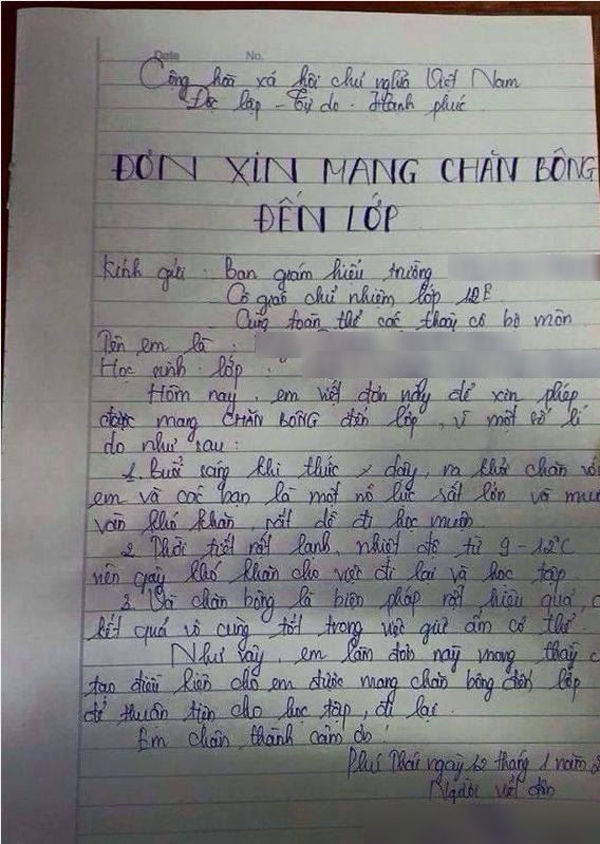 Date No.
Cộng hoà xã hội chủ nghĩa Việt Nam
Độc lập - Tự do - Hành phúc
ĐƠN XIN MANG CHĂN BÔNG
ĐẾN LỚP
Kính gửi : Ban giám hiếu trường
Cô giáo chủ nhiệm lớp 12E
Cùng toàn thể các thầy cô bộ môn
Tên em là :
Học sinh lớp :
Hôm nay, em viết đơn nầy để xin phép
được mang CHĂN BÔNG đến lớp, vì một số lí
do như sau :
1. Buổi sáng khi thức dậy, ra khỏi chăn với
em và các bạn là một nỗ lực rất lớn và muôn
vàn khó khăn, rất dễ đi học muộn.
2. Thời tiết rất lạnh, nhiệt độ từ 9 - 12°C
nên gây khó khăn cho việc đi lại và học tập
3. Và chăn bông là biện pháp rất hiệu quả,
kết quả vô cùng tốt trong việc giữ ấm cơ thể
Như vậy, em làm đơn này mong thầy
tạo điều kiện cho em được mang chăn bông đến lớp
để thuân tiện cho học tập, đi lại.
Em chân thành cảm ơn !
Phú Thái ngày 12 tháng 1 năm 2
Người viết đơn